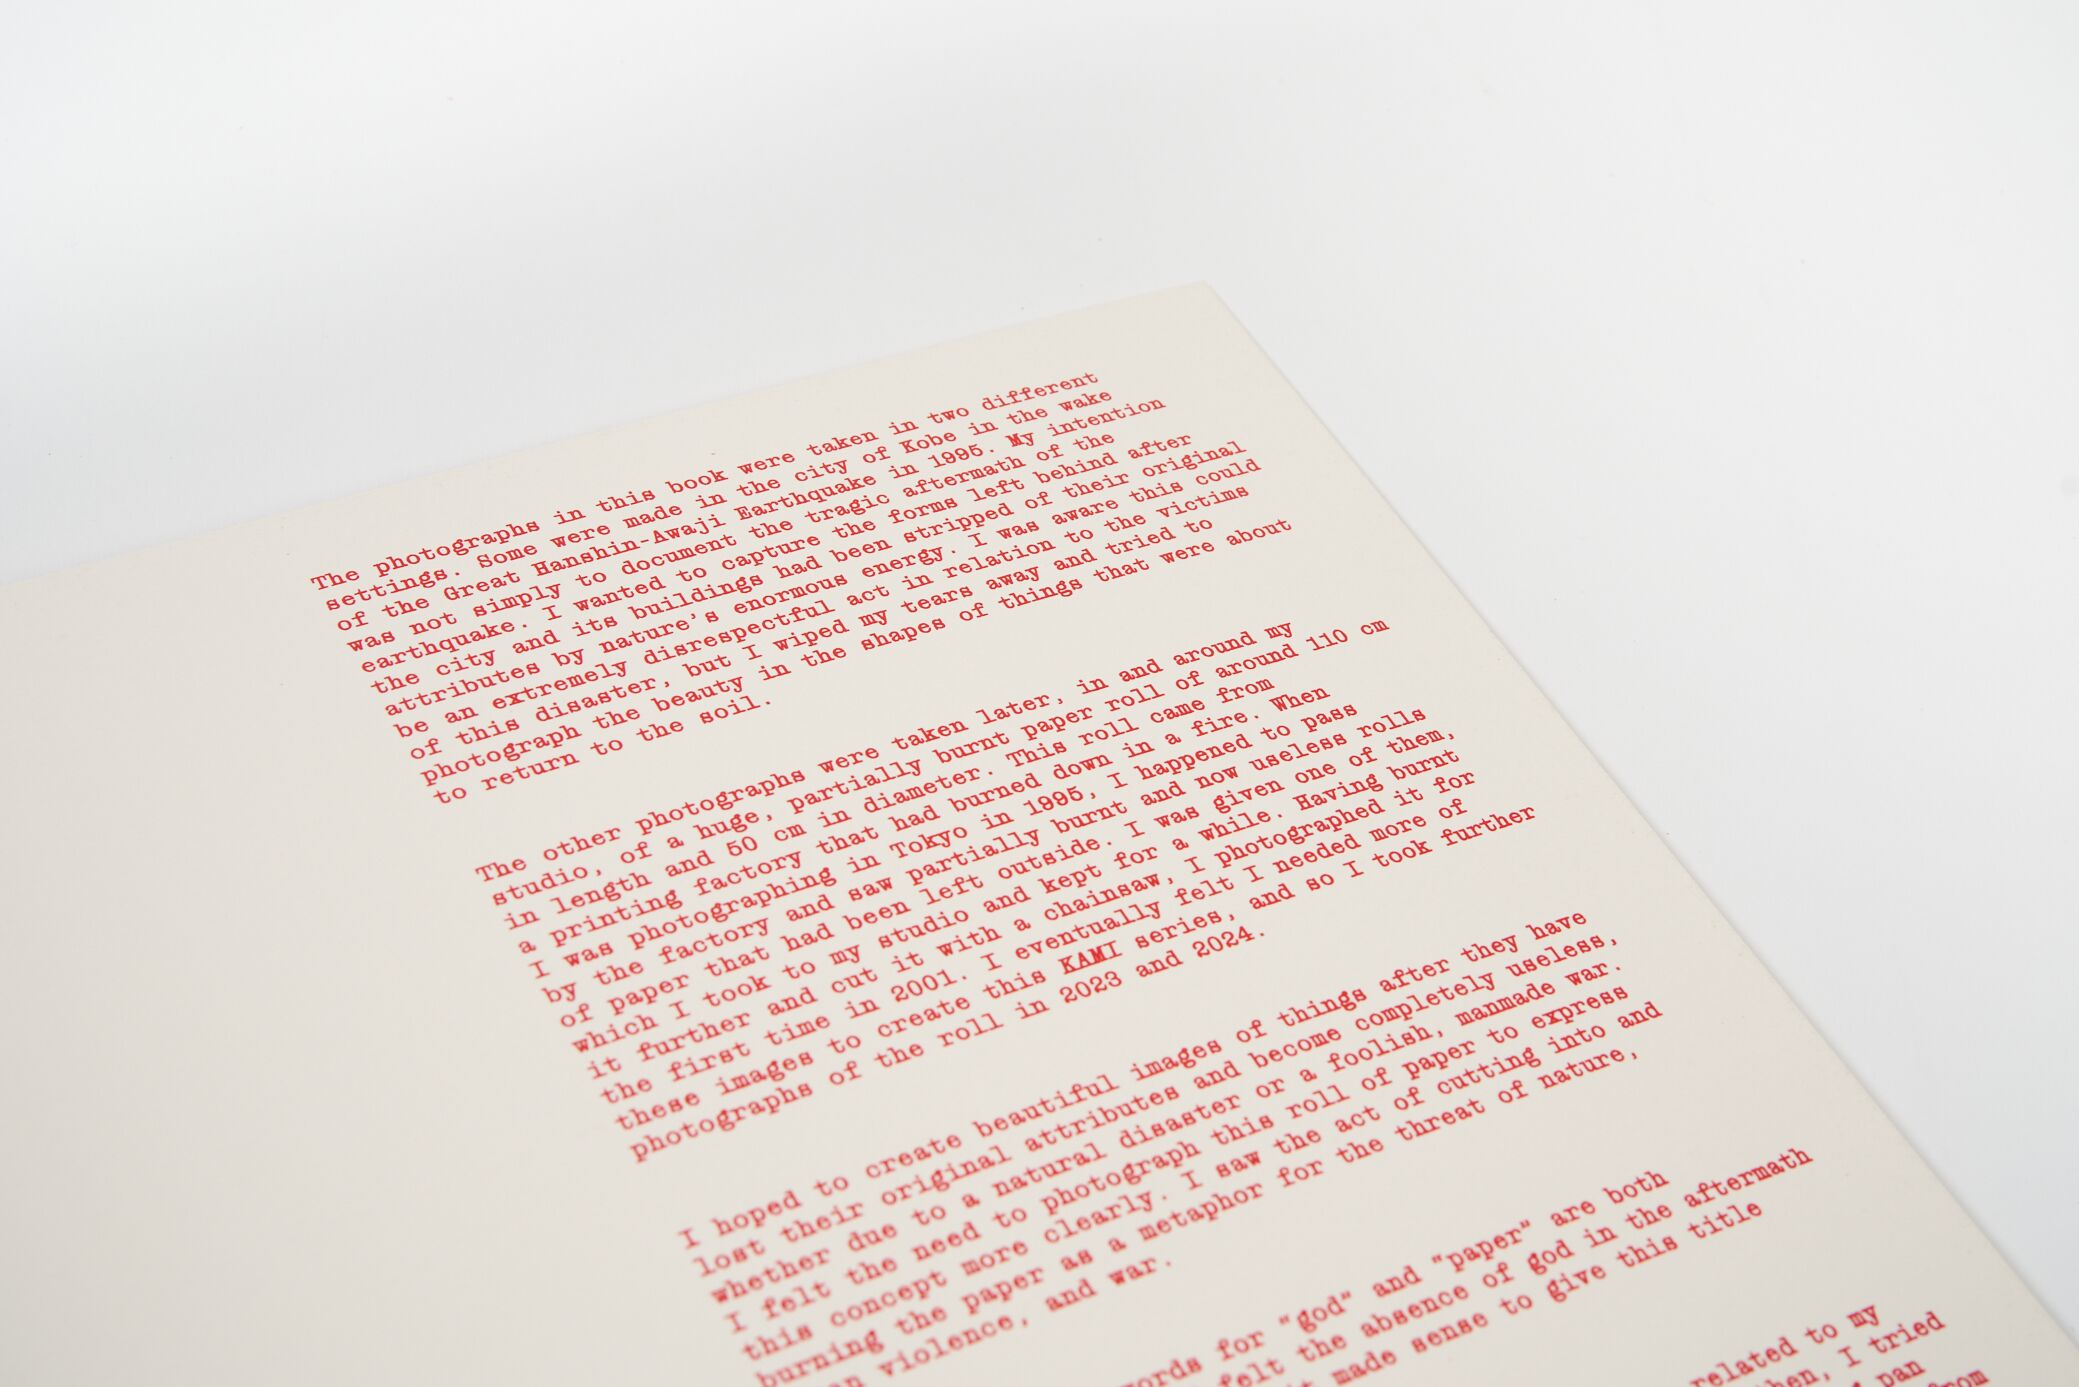 The photographs in this book were taken in two different
settings. Some were made in the city of Kobe in the wake
of the Great Hanshin-Awaji Earthquake in 1995. My intention
was not simply to document the tragic aftermath of the
earthquake. I wanted to capture the forms left behind after
the city and its buildings had been stripped of their original
attributes by nature's enormous energy. I was aware this could
be an extremely disrespectful act in relation to the victims
of this disaster, but I wiped my tears away and tried to
photograph the beauty in the shapes of things that were about
to return to the soil.
The other photographs were taken later, in and around my
studio, of a huge, partially burnt paper roll of around 110 cm
in length and 50 cm in diameter. This roll came from
a printing factory that had burned down in a fire. When
I was photographing in Tokyo in 1995, I happened to pass
by the factory and saw partially burnt and now useless rolls
of paper that had been left outside. I was given one of them,
which I took to my studio and kept for a while. Having burnt
it further and cut it with a chainsaw, I photographed it for
the first time in 2001. I eventually felt I needed more of
these images to create this KAMI series, and so I took further
photographs of the roll in 2023 and 2024.
I hoped to create beautiful images of things after they have
lost their original attributes and become completely useless,
whether due to a natural disaster or a foolish, manmade war.
I felt the need to photograph this roll of paper to express
this concept more clearly. I saw the act of cutting into and
burning the paper as a metaphor for the threat of nature,
violence, and war.
words for "god" and "paper" are both
felt the absence of god in the aftermath
made sense to give this title
related to my
then, I tried
pan
from